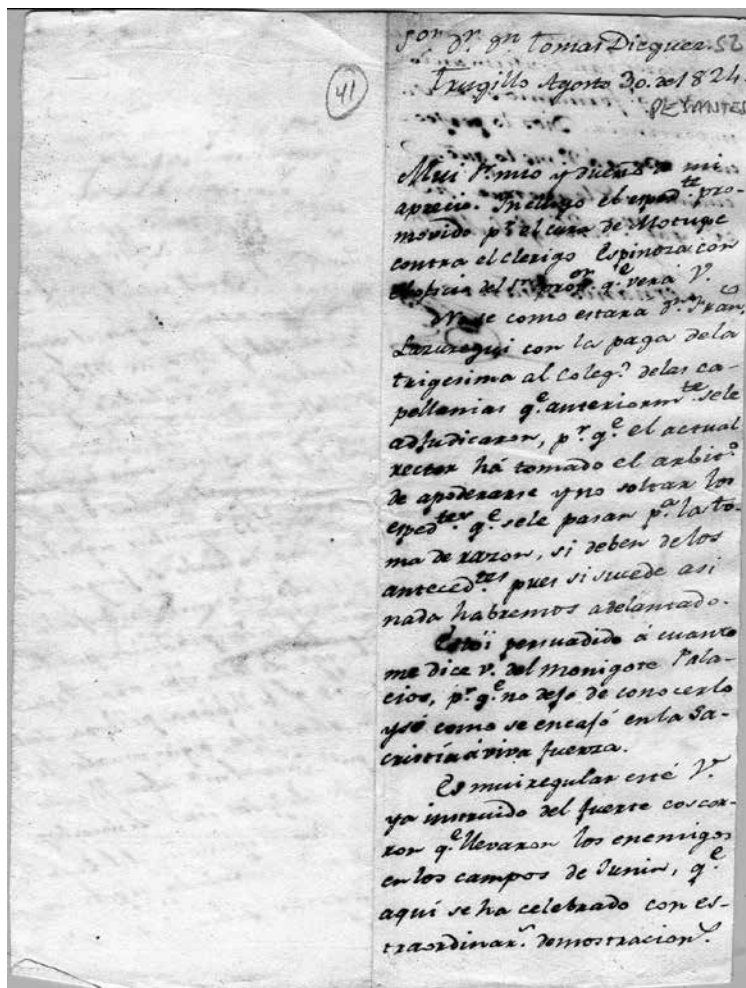 41
Sor Dr. Dn Tomas Dieguez. 52
Truxillo Agosto 30. del 824.
Mui Sr. mio y dueño de mi
aprecio. Incluyo el espedte. pro-
movido pr. el cura de Motupe
contra el clerigo Espinoza con
noticia del Sr. qe. verá V.
No se como estara Dn. Fran,
Lazuregui con la paga dela
trigesima al Colego. delas ca-
pellanias qe. anteriormte. sele
adjudicaron, pr. qe. el actual
rector há tomado el arbito.
de apoderarse y no soltar los
espedtes. qe. sele pasan pa. la to-
ma de razon, si deben delos
antecedtes. pues si sucede asi
nada habremos adelantado.
Estoi persuadido á cuanto
me dice V. del monigote Pala-
cios, pr. qe. no dejo de conocerlo
y sé como se encajó en la Sa-
cristía á viva fuerza.
Es mui regular esté V.
ya instruido del fuerte coscor-
ron qe. llevaron los enemigos
en los campos de Junin, qe.
aqui se ha celebrado con es-
traordinars. demostracions.